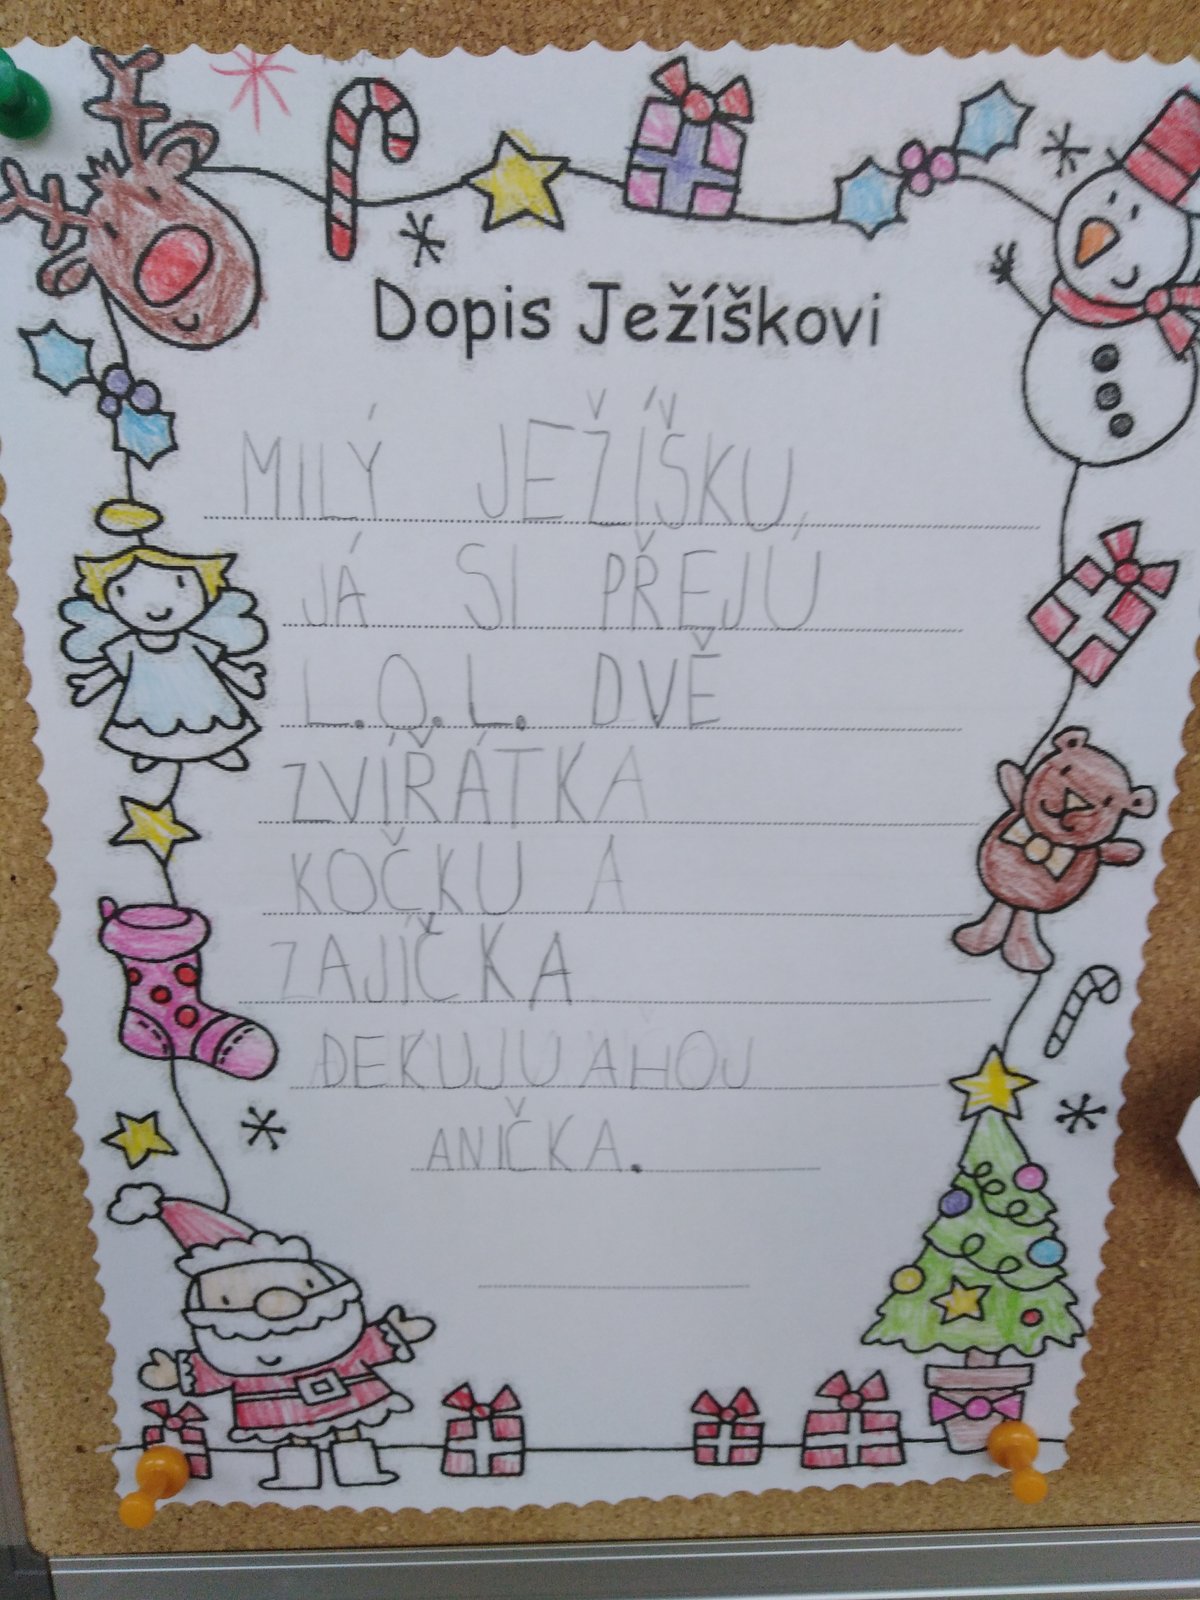 Dopis Ježíškovi
MILÝ JEŽÍŠKU,
JÁ SI PŘEJU
L.O.L. DVĚ
ZVÍŘÁTKA
KOČKU A
ZAJÍČKA
DEKUJU AHOJ
ANIČKA.